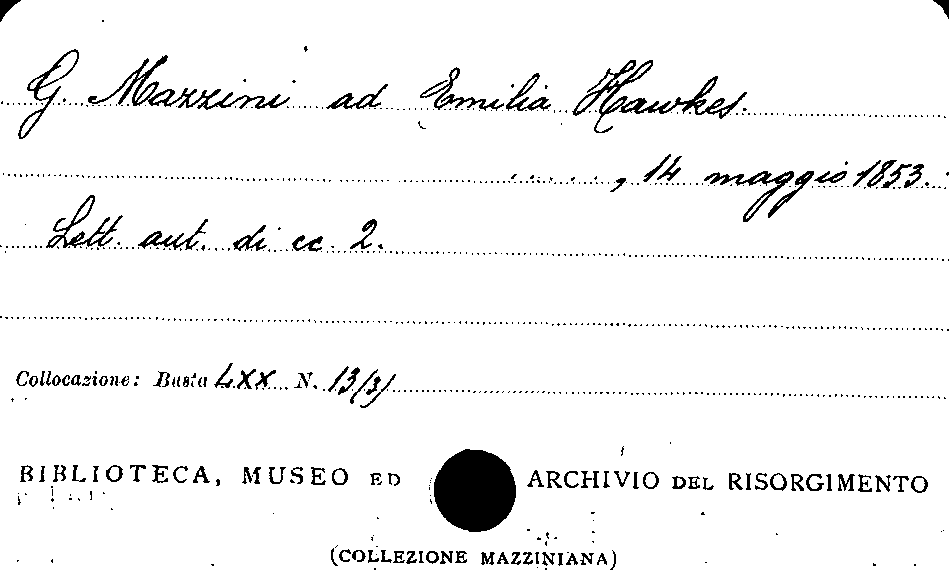 G. Mazzini ad Emilia Hawkes.
....., 14 maggio 1853.
Lett. aut. di cc. 2.
Collocazione: Busta LXX N. 13/3)
BIBLIOTECA, MUSEO ED ARCHIVIO DEL RISORGIMENTO
(COLLEZIONE MAZZINIANA)